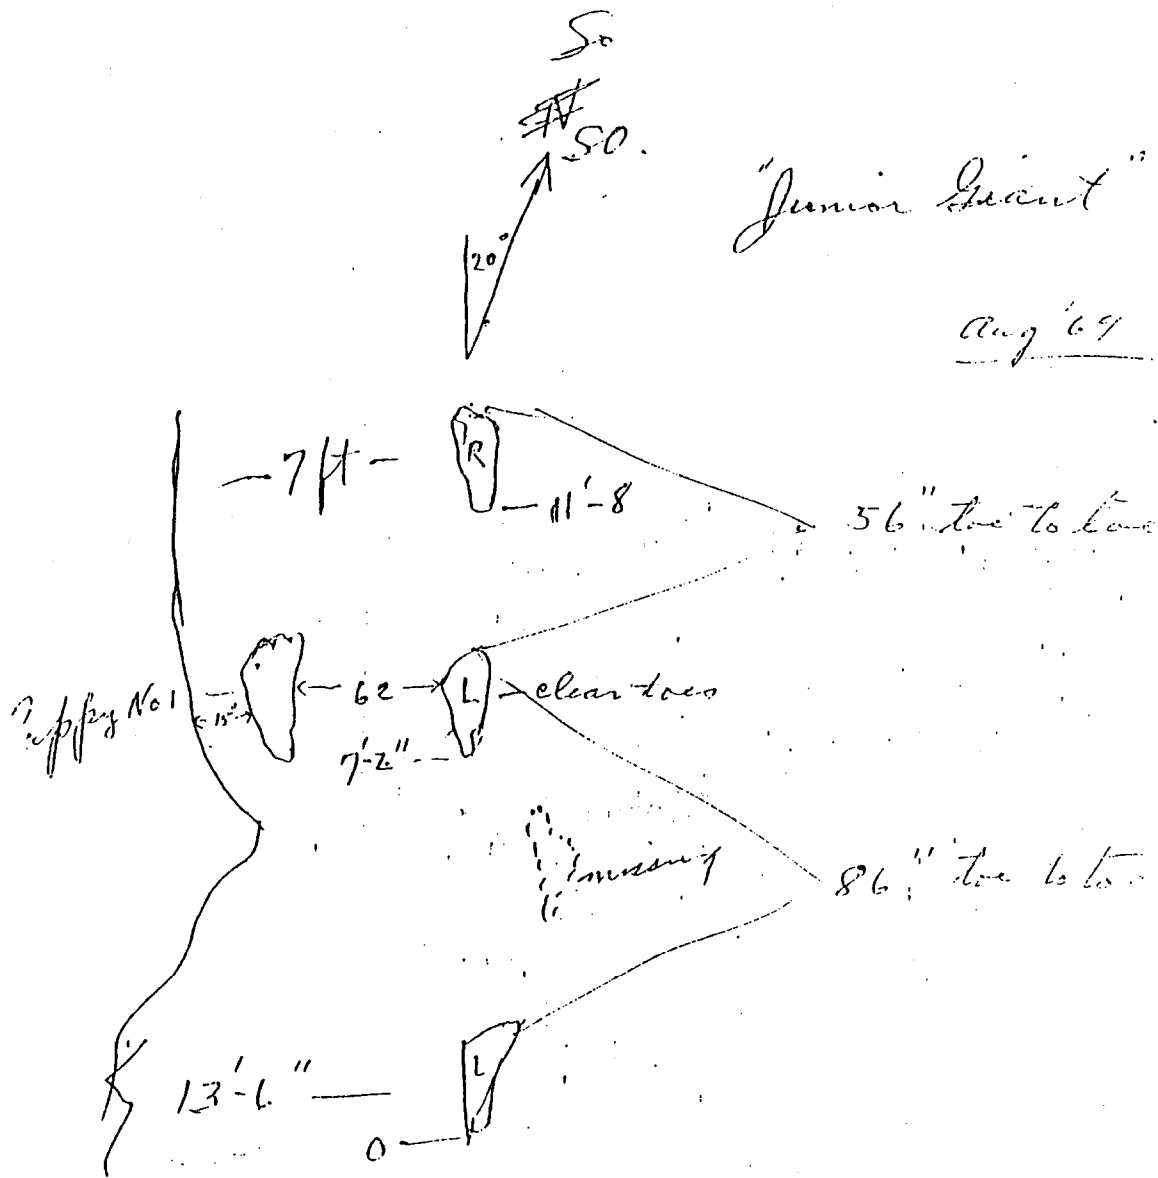 So
SO.
"Junior Giant"
20°
Aug '69
7 ft
R
11'-8
56" toe to toe
No 1
15"
62
L
clear toes
7'-2"
missing
86" toe to to
13'-6"
L
0